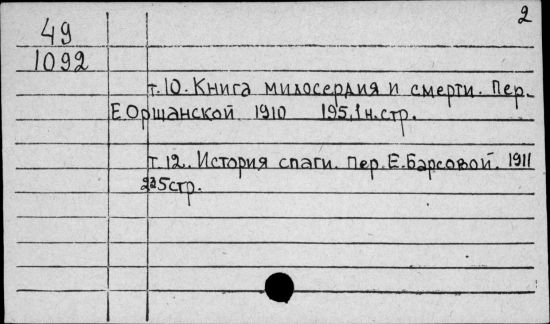 2
49
1092
т. 10. Книга милосердия и смерти. Пер.
Е Орщанской 1910 195,1 н.стр.
т. 12. История спаги. пер. Е. Барсовой. 1911
225 стр.